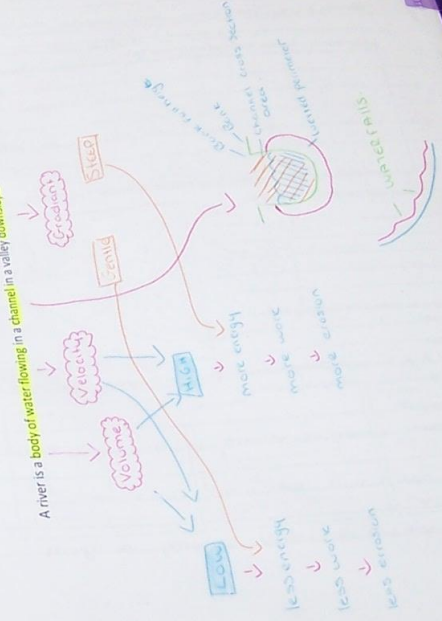 A river is a body of water flowing in a channel in a valley
Volume
Velocity
Gradient
Gentle
Steep
LOW
HIGH
less energy
less work
less erosion
more energy
more work
more erosion
Bank
channel cross section
area
wetted perimeter
waterfalls